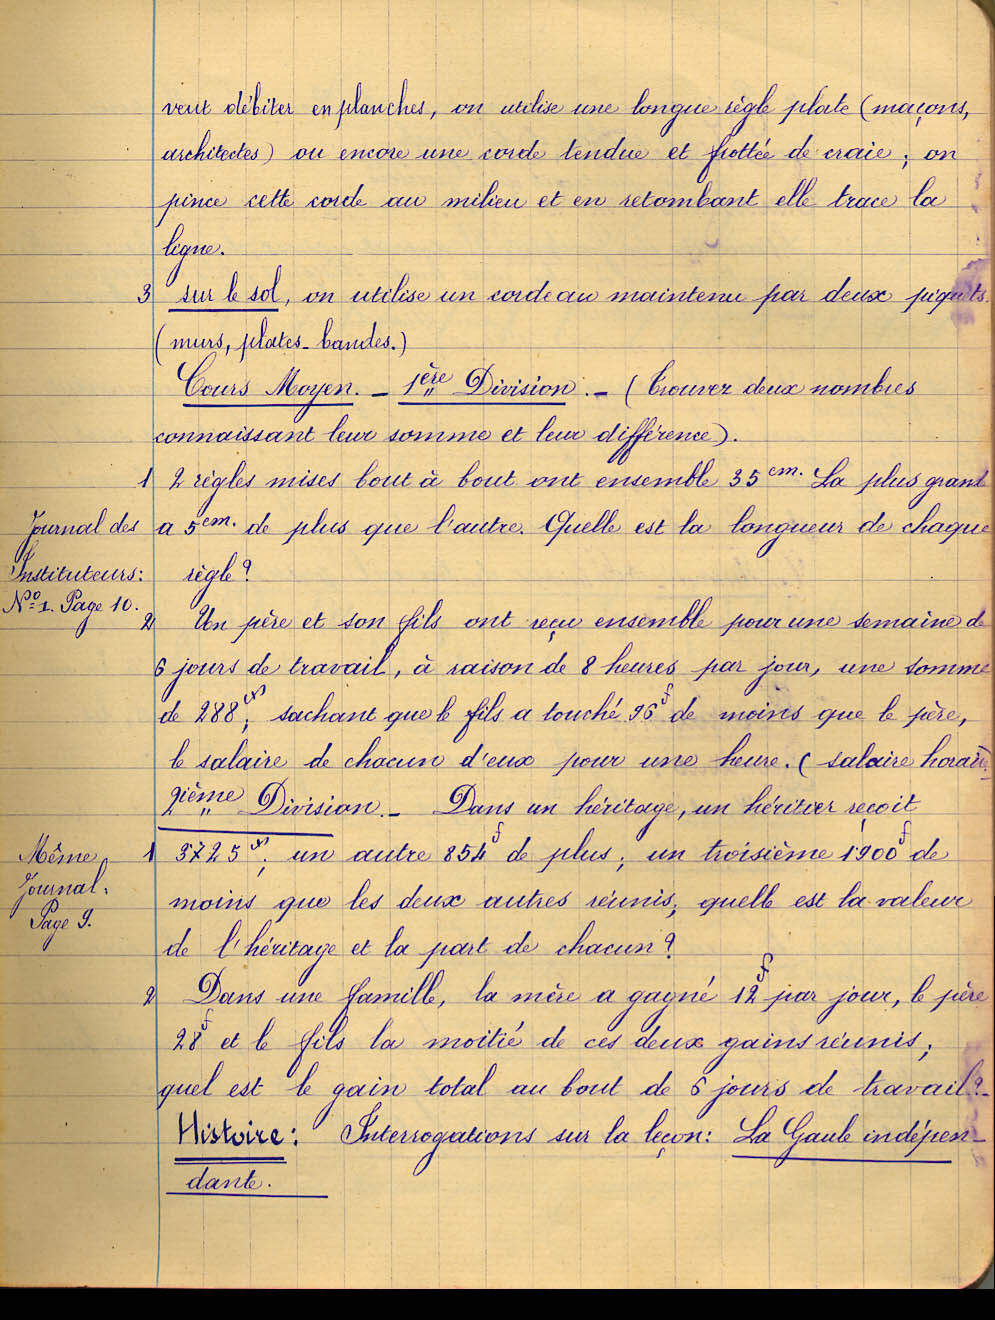 veut débiter en planches, on utilise une longue règle plate (maçons,
architectes) ou encore une corde tendue et frottée de craie ; on
pince cette corde au milieu et en retombant elle trace la
ligne.
3 sur le sol, on utilise un cordeau maintenu par deux piquets.
(murs, plates-bandes.)
Cours Moyen. _ 1ère Division. _ (Trouvez deux nombres
connaissant leur somme et leur différence).
1 2 règles mises bout à bout ont ensemble 35 cm. La plus grand
a 5 cm. de plus que l'autre. Quelle est la longueur de chaque
règle ?
Journal des
Instituteurs:
Nº 1. Page 10.
2 Un père et son fils ont reçu ensemble pour une semaine de
6 jours de travail, à raison de 8 heures par jour, une somme
de 288 frs; sachant que le fils a touché 96 f de moins que le père,
le salaire de chacun d'eux pour une heure. (salaire horaire)
2ième Division. _ Dans un héritage, un héritier reçoit
Même
Journal.
Page 9.
1 3725 frs; un autre 854 f de plus ; un troisième 1900 f de
moins que les deux autres réunis; quelle est la valeur
de l'héritage et la part de chacun ?
2 Dans une famille, la mère a gagné 12 frs par jour, le père
28 f et le fils la moitié de ces deux gains réunis ;
quel est le gain total au bout de 6 jours de travail ? _
Histoire : Interrogations sur la leçon : La Gaule indépen-
dante.